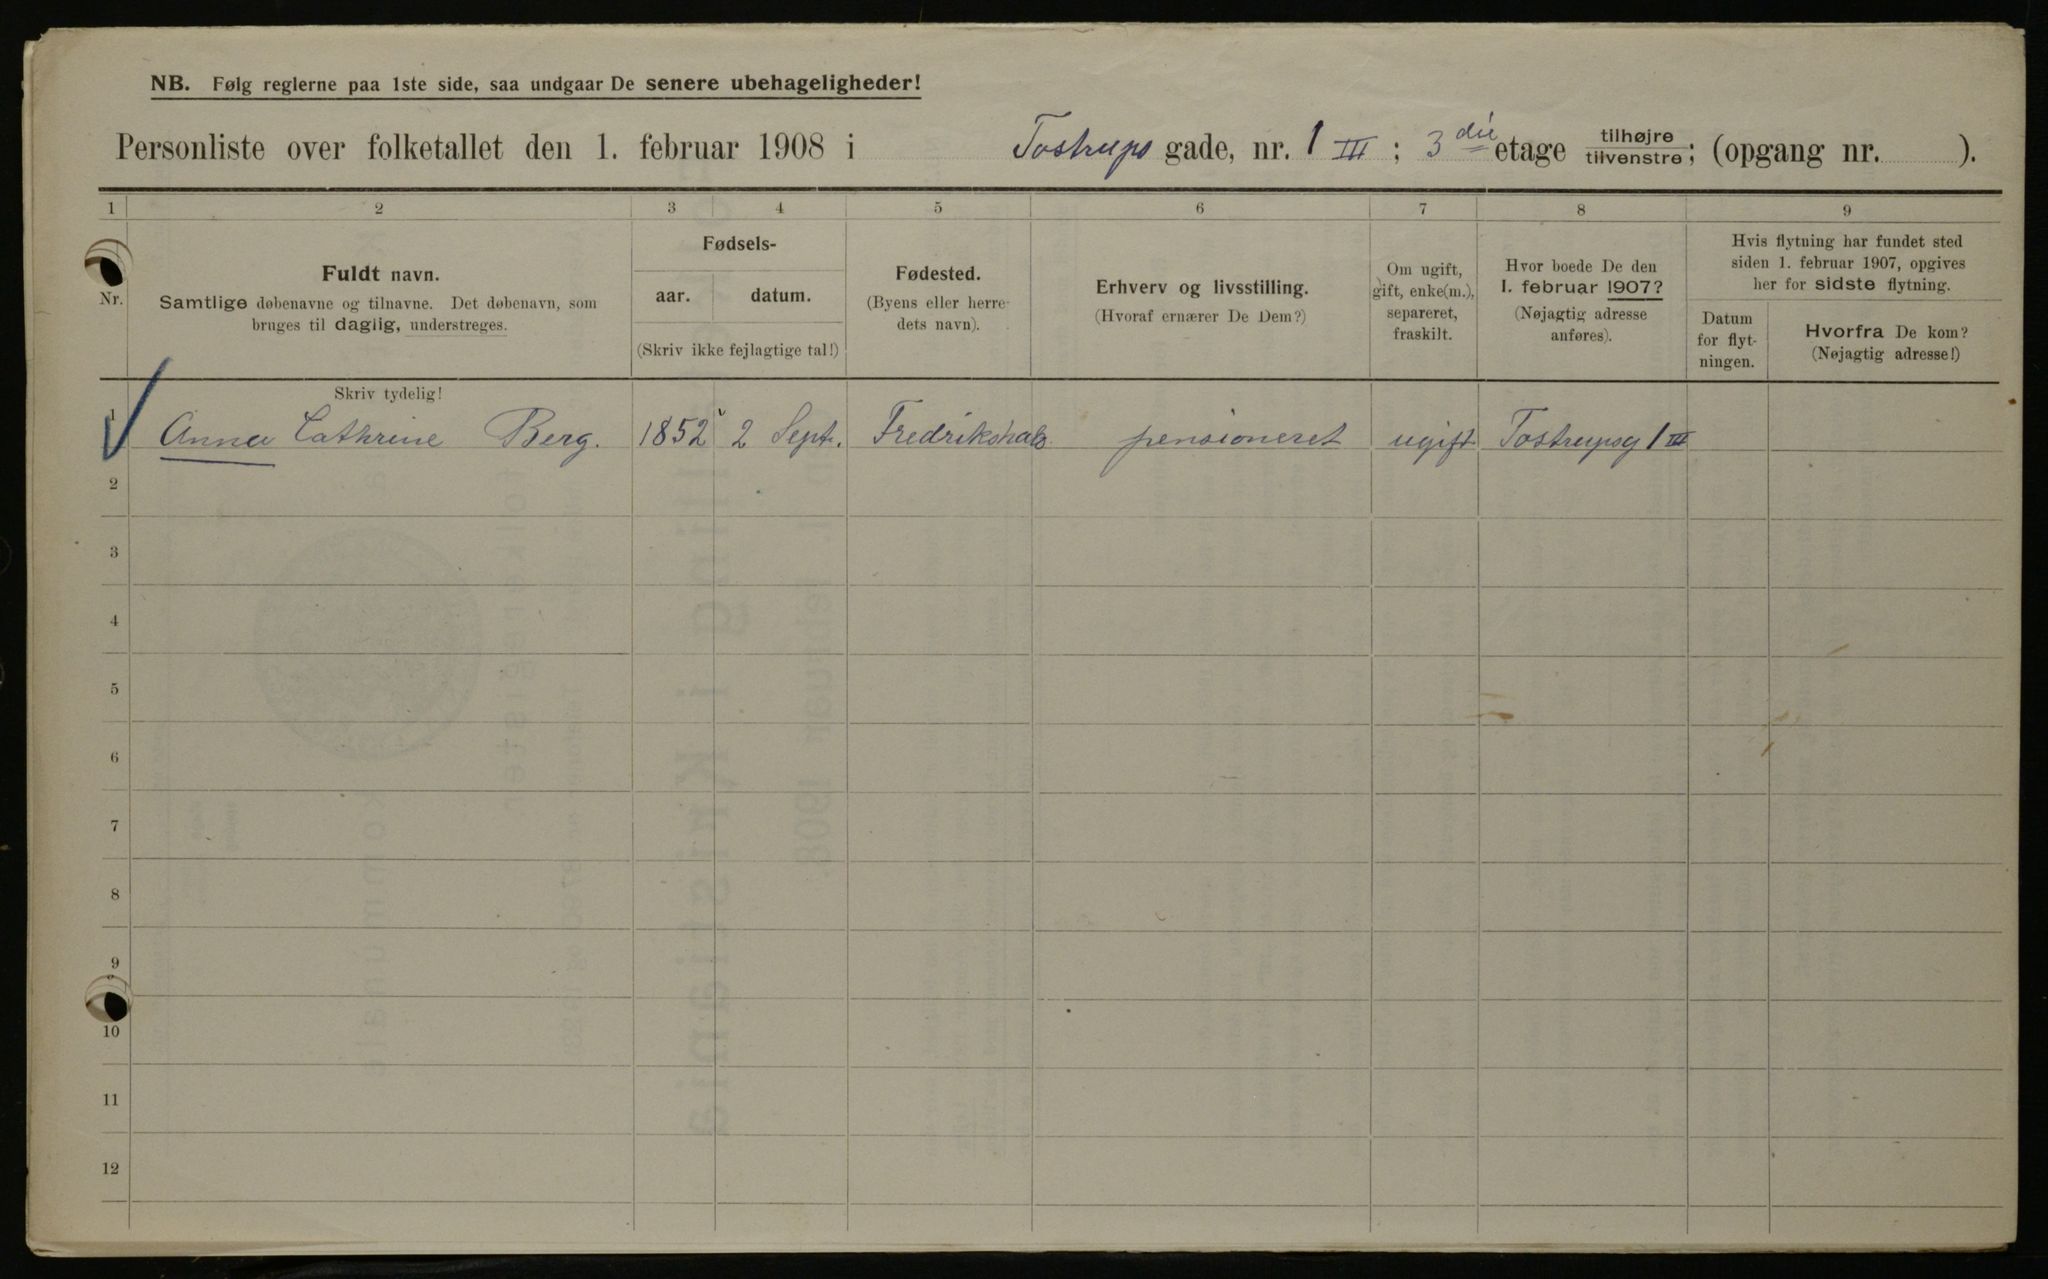 NB. Følg reglerne paa 1ste side, saa undgaar De senere ubehageligheder!
Personliste over folketallet den 1. februar 1908 i Tostrups gade, nr. 1 III ; 3die etage tilhøjre tilvenstre; (opgang nr. ).
1 2 3 4 5 6 7 8 9
Nr.
Fuldt navn.
Samtlige døbenavne og tilnavne. Det døbenavn, som
bruges til daglig, understreges.
Fødsels-
aar. datum.
(Skriv ikke fejlagtige tal!)
Fødested.
(Byens eller herre-
dets navn).
Erhverv og livsstilling.
(Hvoraf ernærer De Dem?)
Om ugift,
gift, enke(m.),
separeret,
fraskilt.
Hvor boede De den
1. februar 1907?
(Nøjagtig adresse
anføres).
Hvis flytning har fundet sted
siden 1. februar 1907, opgives
her for sidste flytning.
Datum
for flyt-
ningen.
Hvorfra De kom?
(Nøjagtig adresse!)
Skriv tydelig!
1 Anna Cathrine Berg. 1852 2 Sept. Fredrikshald pensioneret ugift Tostrupsg 1 III
2
3
4
5
6
7
8
9
10
11
12